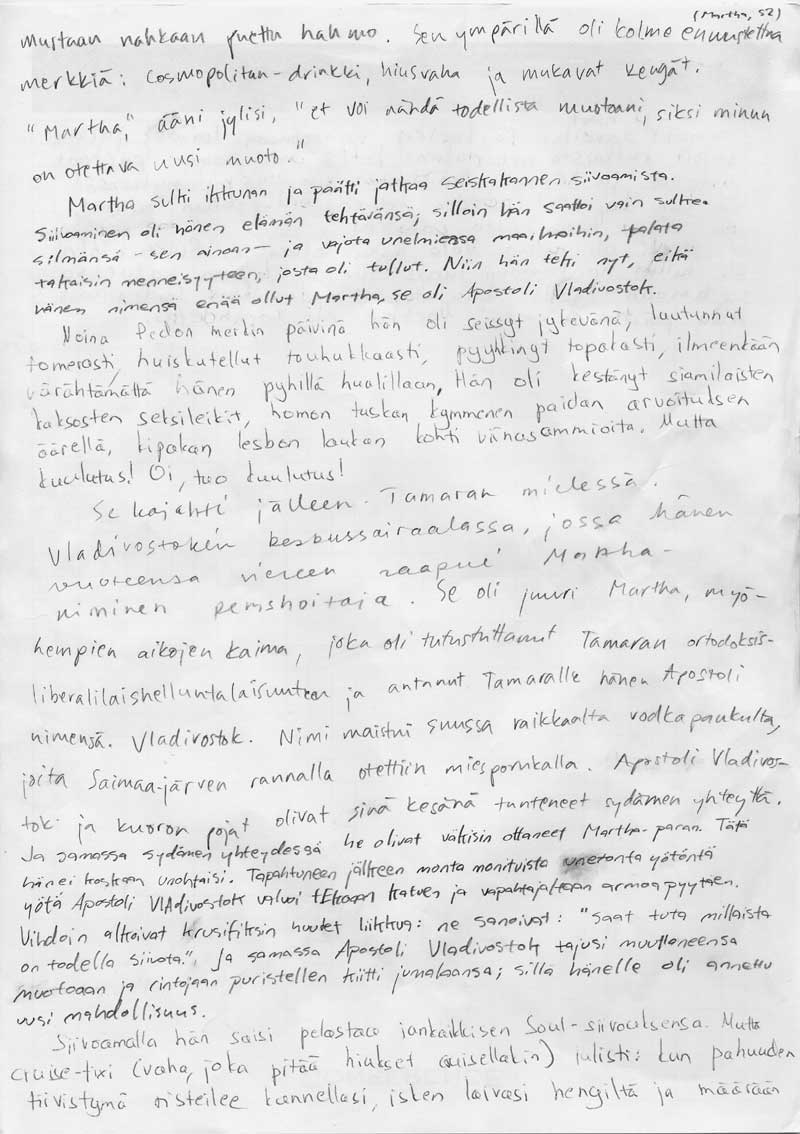 (Martha, 52)
mustaan nahkaan puettu hahmo. Sen ympärillä oli kolme ennustettua
merkkiä: Cosmopolitan-drinkki, hiusvaha ja mukavat kengät.
"Martha," ääni jylisi, "et voi nähdä todellista muotoani, siksi minun
on otettava uusi muoto."
Martha sulki ikkunan ja päätti jatkaa seiskakannen siivoamista.
Siivoaminen oli hänen elämän tehtävänsä; silloin hän saattoi vain sulkea
silmänsä - sen ainoan - ja vajota unelmiensa maailmoihin, palata
takaisin menneisyyteen, josta oli tullut. Niin hän teki nyt, eikä
hänen nimensä enää ollut Martha, se oli Apostoli Vladivostok.
Noina Pedon merkin päivinä hän oli seissyt jykevänä, luutunnut
tomerasti, huiskutellut touhukkaasti, pyyhkinyt topakasti, ilmeenkään
värähtämättä hänen pyhillä huulillaan, Hän oli kestänyt siamilaisten
kaksosten seksileikit, homon tuskan kymmenen paidan arvoituksen
äärellä, kipakan lesbon laukan kohti viinasammioita. Mutta
kuulutus! Oi, tuo kuulutus!
Se kajahti jälleen Tamaran mielessä.
Vladivostokin keskussairaalassa, jossa hänen
vuoteensa viereen saapui Martha-
niminen perushoitaja. Se oli juuri Martha, myö-
hempien aikojen kaima, joka oli tutustuttanut Tamaran ortodoksis-
liberalilaishelluntalaisuuteen ja antanut Tamaralle hänen Apostoli
nimensä. Vladivostok. Nimi maistui suussa raikkaalta vodkapaukulta,
joita Saimaa-järven rannalla otettiin miesporukalla. Apostoli Vladivos-
tok ja kuoron pojat olivat sinä kesänä tunteneet sydämen yhteyttä.
Ja samassa sydämen yhteydessä he olivat väkisin ottaneet Martha-paran. Tätä
hän ei koskaan unohtaisi. Tapahtuneen jälkeen monta monituista unetonta yötöntä
yötä Apostoli Vladivostok valvoi katuen ja vapahtajaltaan armoa pyytäen.
Vihdoin alkoivat krusifiksin huulet liikkua: ne sanoivat: "Saat tuta millaista
on todella siivota." Ja samassa Apostoli Vladivostok tajusi muuttaneensa
muotoaan ja rintojaan puristellen kiitti jumalaansa; sillä hänelle oli annettu
uusi mahdollisuus.
Siivoamalla hän saisi pelastaa iankaikkisen Soul-siivouksensa. Mutta
cruise-fixi (vaha, joka pitää hiukset ouisellakin) julisti: kun pahuuden
tiivistymä risteilee kannellasi, isken laivasi hengiltä ja määrään